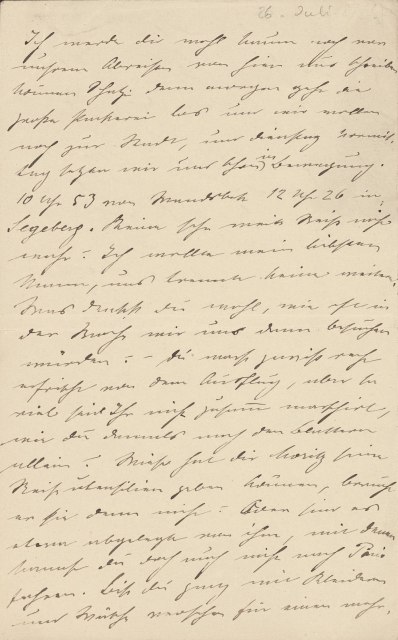 26. Juli
Ich werde dir wohl kaum noch von
unserem Abreisen von hier aus schreiben
können Schatz denn morgen geht die
große Packerei los und wir wollen
noch zur Stadt, und Dienstag Vormit-
tag setzen wir uns schon in Bewegung.
10 Uhr 53 von Wandsbek 12 Uhr 26 in
Segeberg. Keine sehr weite Reise nicht
wahr? Ich wollte mein liebster
Mann, uns trennte keine weitere.
Was denkst du wohl, wie oft in
der Woche wir uns dann besuchen
würden? – Du warst gewiss recht
erfrischt von dem Ausflug, aber so
viel seid ihr nicht zusammen marschirt,
wie du damals nach den
allein? Wieso hat dir Moritz seine
Reiseutensilien geben können, braucht
er sie denn nicht? Oder sind es
etwa abgelegte von ihm, mit denen
kannst du doch auch nicht nach Paris
fahren. Bist du ganz mit Kleidern
und Wäsche versehen für einen mehr-